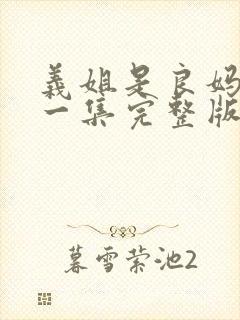 義姐是良妈
一集完整版
暮雪萦池2